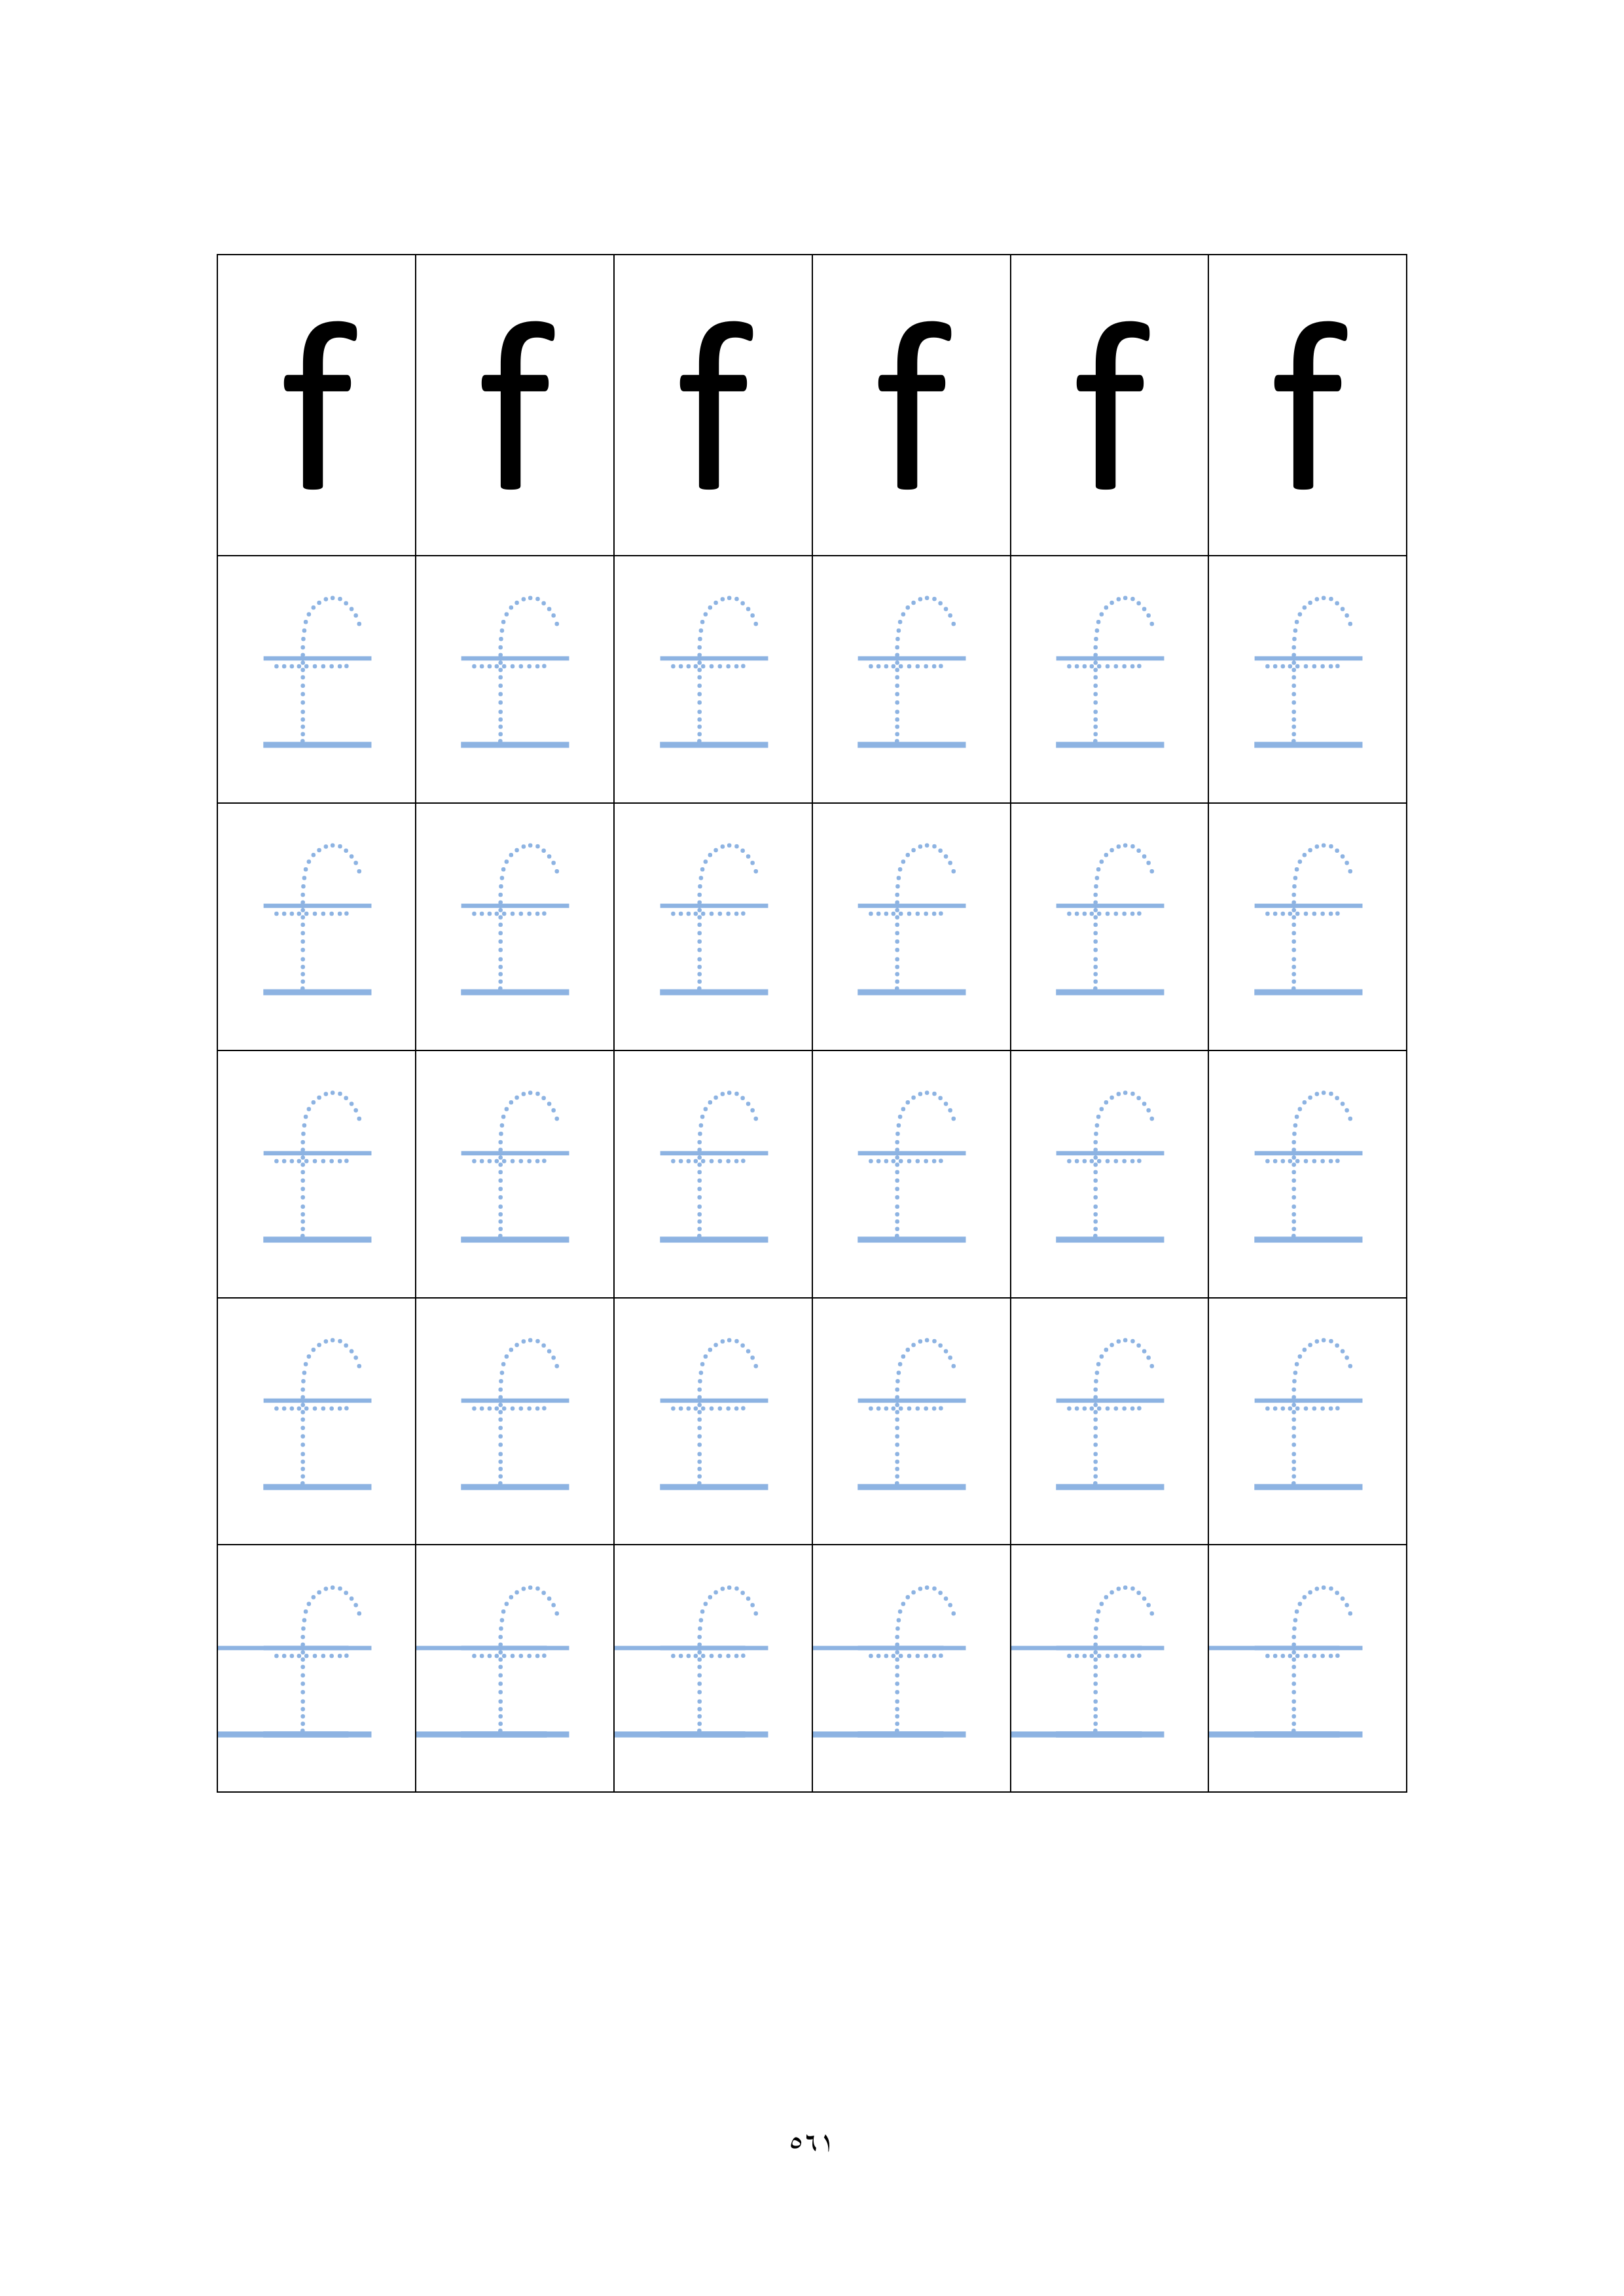 f f f f f f
f f f f f f
f f f f f f
f f f f f f
f f f f f f
f f f f f f
٥٦١